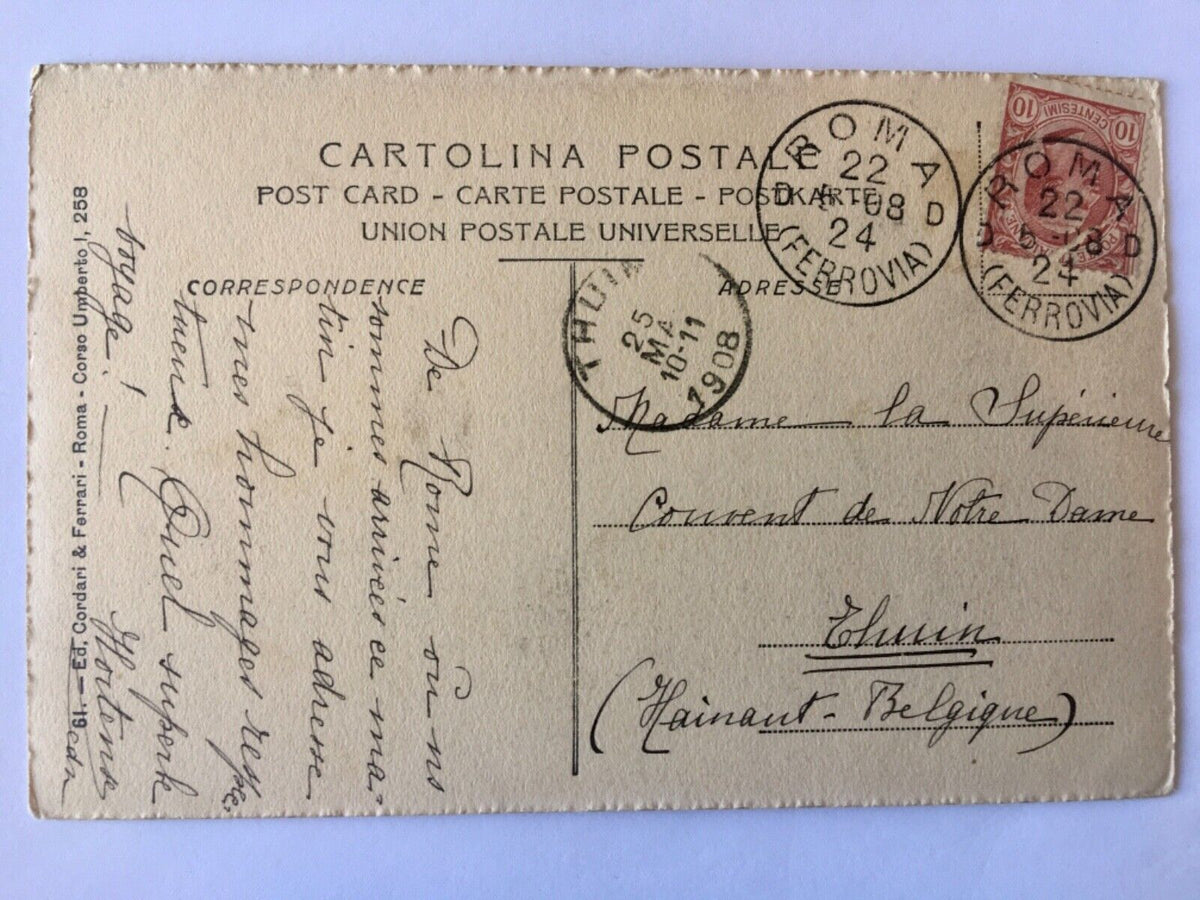 CARTOLINA POSTALE
POST CARD - CARTE POSTALE - POSTKARTE
UNION POSTALE UNIVERSELLE
CORRESPONDENCE
ADRESSE
ROMA
22
D 5-08 D
24
(FERROVIA)
10 CENTESIMI 10
ROMA
22
D 5-08 D
24
(FERROVIA)
THUIN
25
MA
10-11
1908
De Rome où ns
sommes arrivées ce ma-
tin je vous adresse
mes hommages respec
tueux. Quel superbe
voyage! Hortense
Madame la Supérieure
Couvent de Notre Dame
Thuin
(Hainaut - Belgique)
61. — Ed. Cordari & Ferrari - Roma - Corso Umberto I, 258